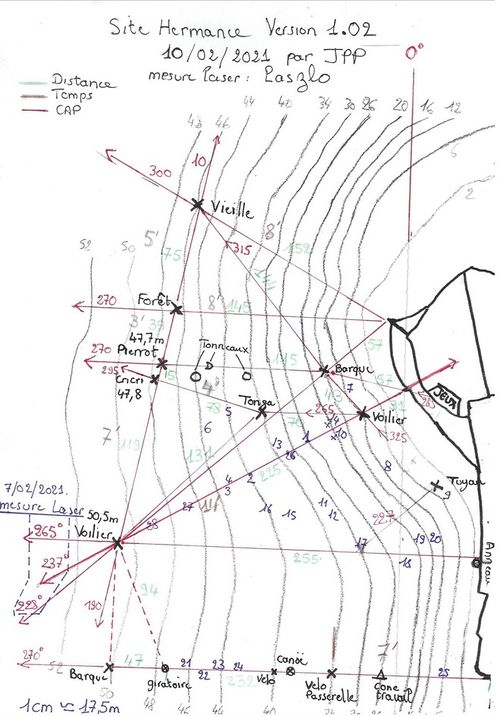 Site Hermance Version 1.02
10/02/2021 par JPP
mesure Laser : Laszlo
Distance
Temps
CAP
0°
44 40 34 30 26 20 16 12
48 46
6
2
10
300
Vieille
8'
315
152
5'
75
144
52
50
Forêt
270
8'
145
57
3' 39
47,7m
Pierrot
270
Tonneaux
D
115
Barque
57
295
Encri
47,8
15
4'
43
7
JEUX
91
Tonga
78
5
70
265
Voilier
325
14
10
7
119
6
131
13
1
26
8
Tuyau
9
225
4
2
3
7/02/2021.
mesure Laser
50,5m
Voilier
265°
237°
223°
28
27
14'
16
15
11
12
227
17
19 20
18
255
Anneau
190
94
270°
52
Barque
47
50
giratoire
21
22
23
24
232
Velo
Canoë
Velo
Passerelle
1'
Cone
travail
25
48
46
44
40
1cm ≌ 17,5m